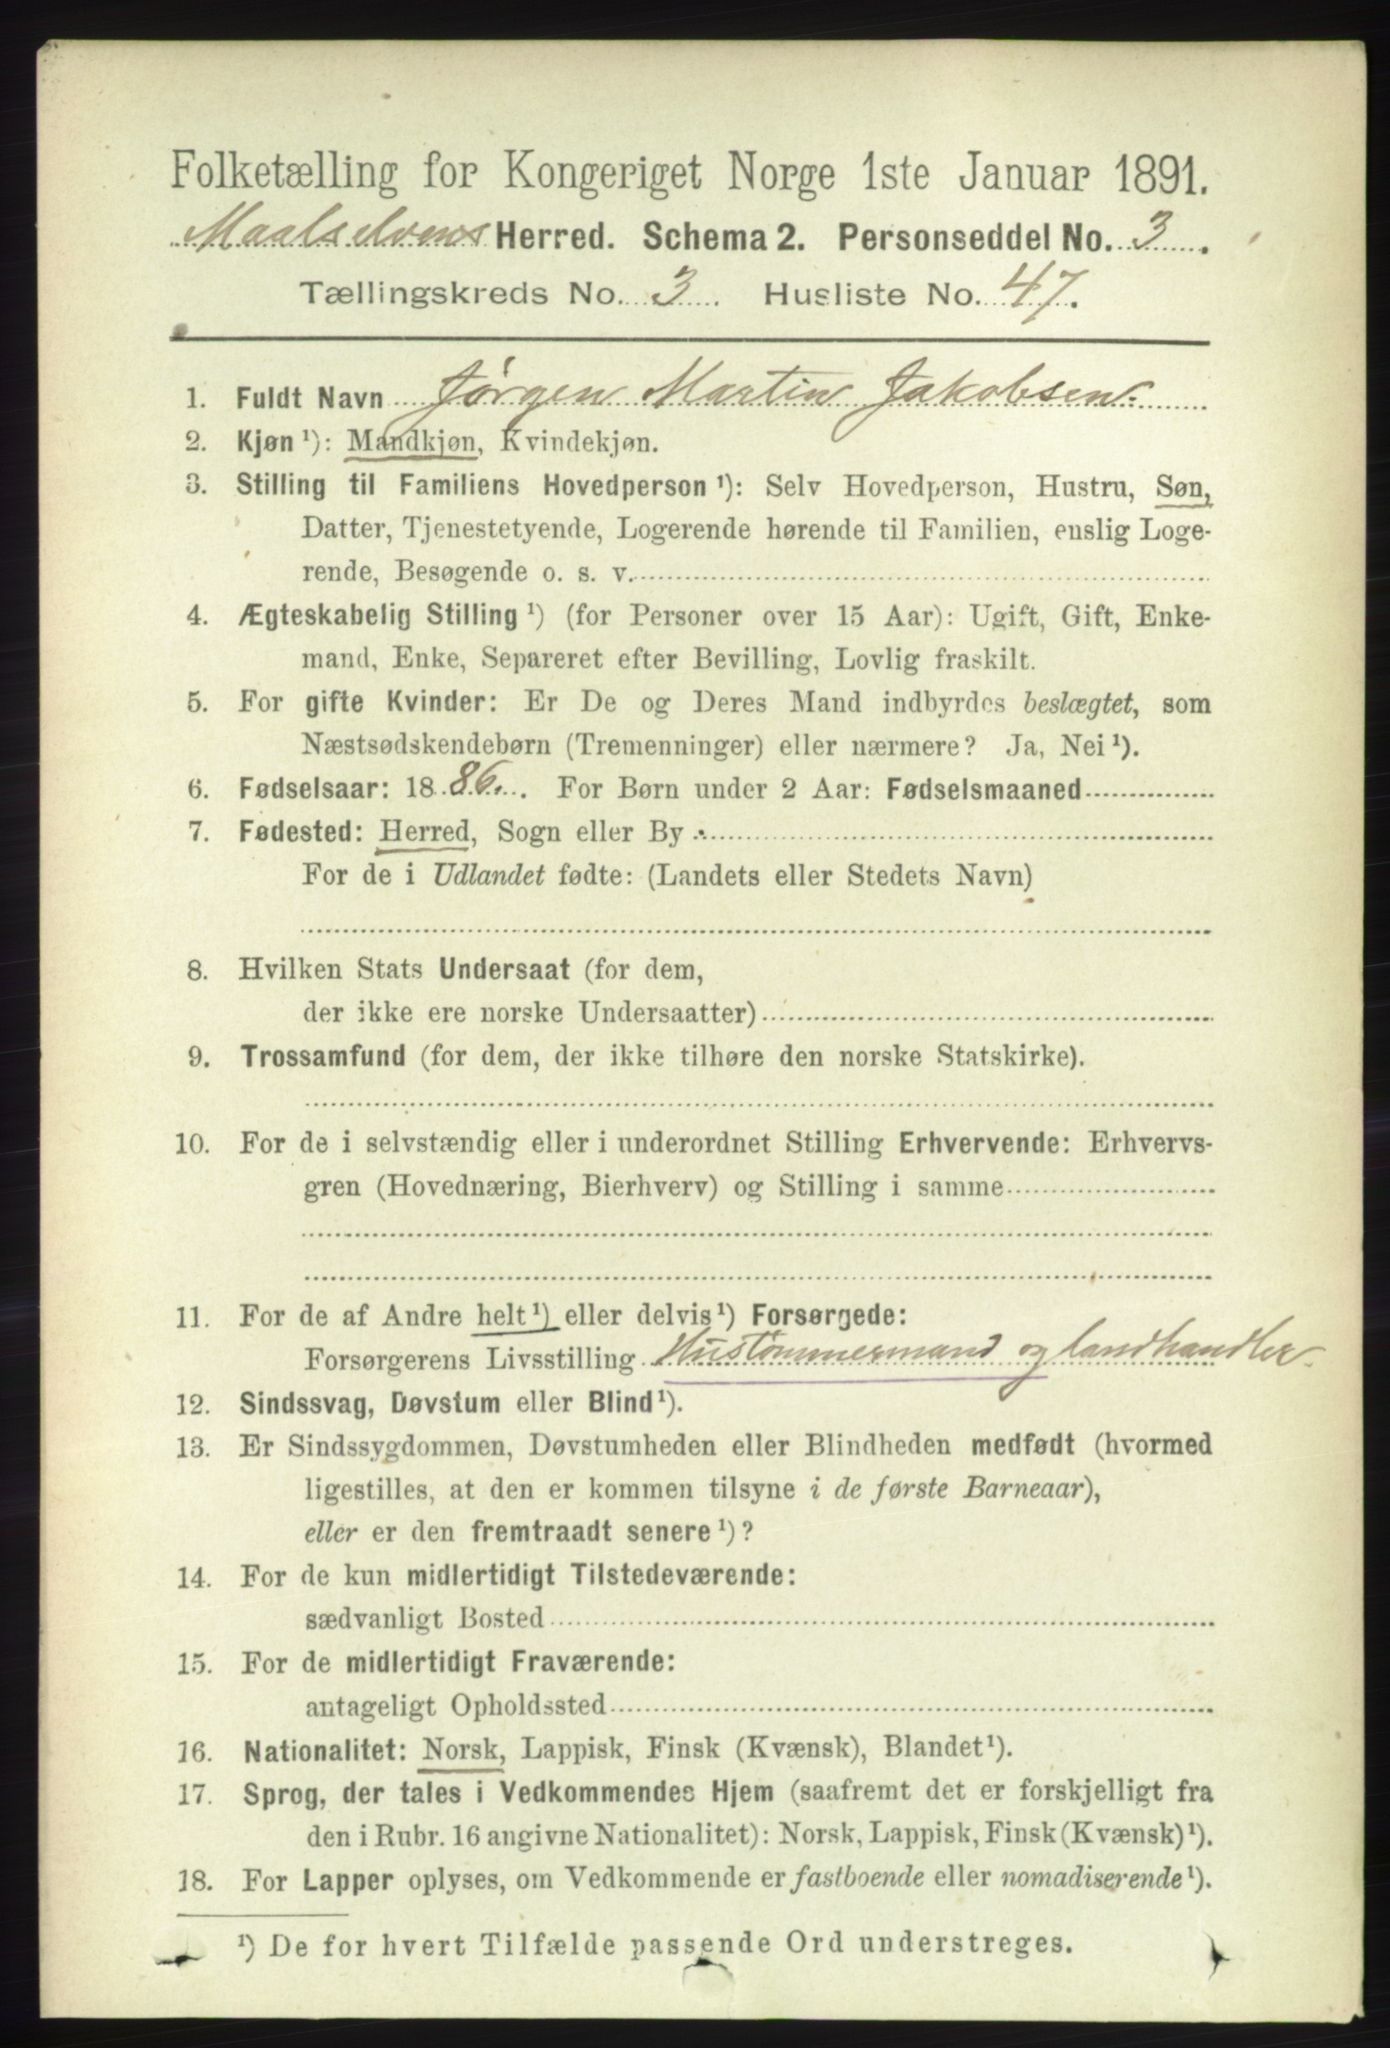 Folketælling for Kongeriget Norge 1ste Januar 1891.
Maalselvens Herred. Schema 2. Personseddel No. 3.
Tællingskreds No. 3. Husliste No. 47.
1. Fuldt Navn Jørgen Martin Jakobsen.
2. Kjøn ¹): Mandkjøn, Kvindekjøn.
3. Stilling til Familiens Hovedperson ¹): Selv Hovedperson, Hustru, Søn,
Datter, Tjenestetyende, Logerende hørende til Familien, enslig Loge-
rende, Besøgende o. s. v.
4. Ægteskabelig Stilling ¹) (for Personer over 15 Aar): Ugift, Gift, Enke-
mand, Enke, Separeret efter Bevilling, Lovlig fraskilt.
5. For gifte Kvinder: Er De og Deres Mand indbyrdes beslægtet, som
Næstsødskendebørn (Tremenninger) eller nærmere? Ja, Nei ¹).
6. Fødselsaar: 1886. For Børn under 2 Aar: Fødselsmaaned
7. Fødested: Herred, Sogn eller By
For de i Udlandet fødte: (Landets eller Stedets Navn)
8. Hvilken Stats Undersaat (for dem,
der ikke ere norske Undersaatter)
9. Trossamfund (for dem, der ikke tilhøre den norske Statskirke).
10. For de i selvstændig eller i underordnet Stilling Erhvervende: Erhvervs-
gren (Hovednæring, Bierhverv) og Stilling i samme
11. For de af Andre helt ¹) eller delvis ¹) Forsørgede:
Forsørgerens Livsstilling Hustømmermand og landhandler.
12. Sindssvag, Døvstum eller Blind ¹).
13. Er Sindssygdommen, Døvstumheden eller Blindheden medfødt (hvormed
ligestilles, at den er kommen tilsyne i de første Barneaar),
eller er den fremtraadt senere ¹)?
14. For de kun midlertidigt Tilstedeværende:
sædvanligt Bosted
15. For de midlertidigt Fraværende:
antageligt Opholdssted
16. Nationalitet: Norsk, Lappisk, Finsk (Kvænsk), Blandet ¹).
17. Sprog, der tales i Vedkommendes Hjem (saafremt det er forskjelligt fra
den i Rubr. 16 angivne Nationalitet): Norsk, Lappisk, Finsk (Kvænsk) ¹).
18. For Lapper oplyses, om Vedkommende er fastboende eller nomadiserende ¹).
¹) De for hvert Tilfælde passende Ord understreges.